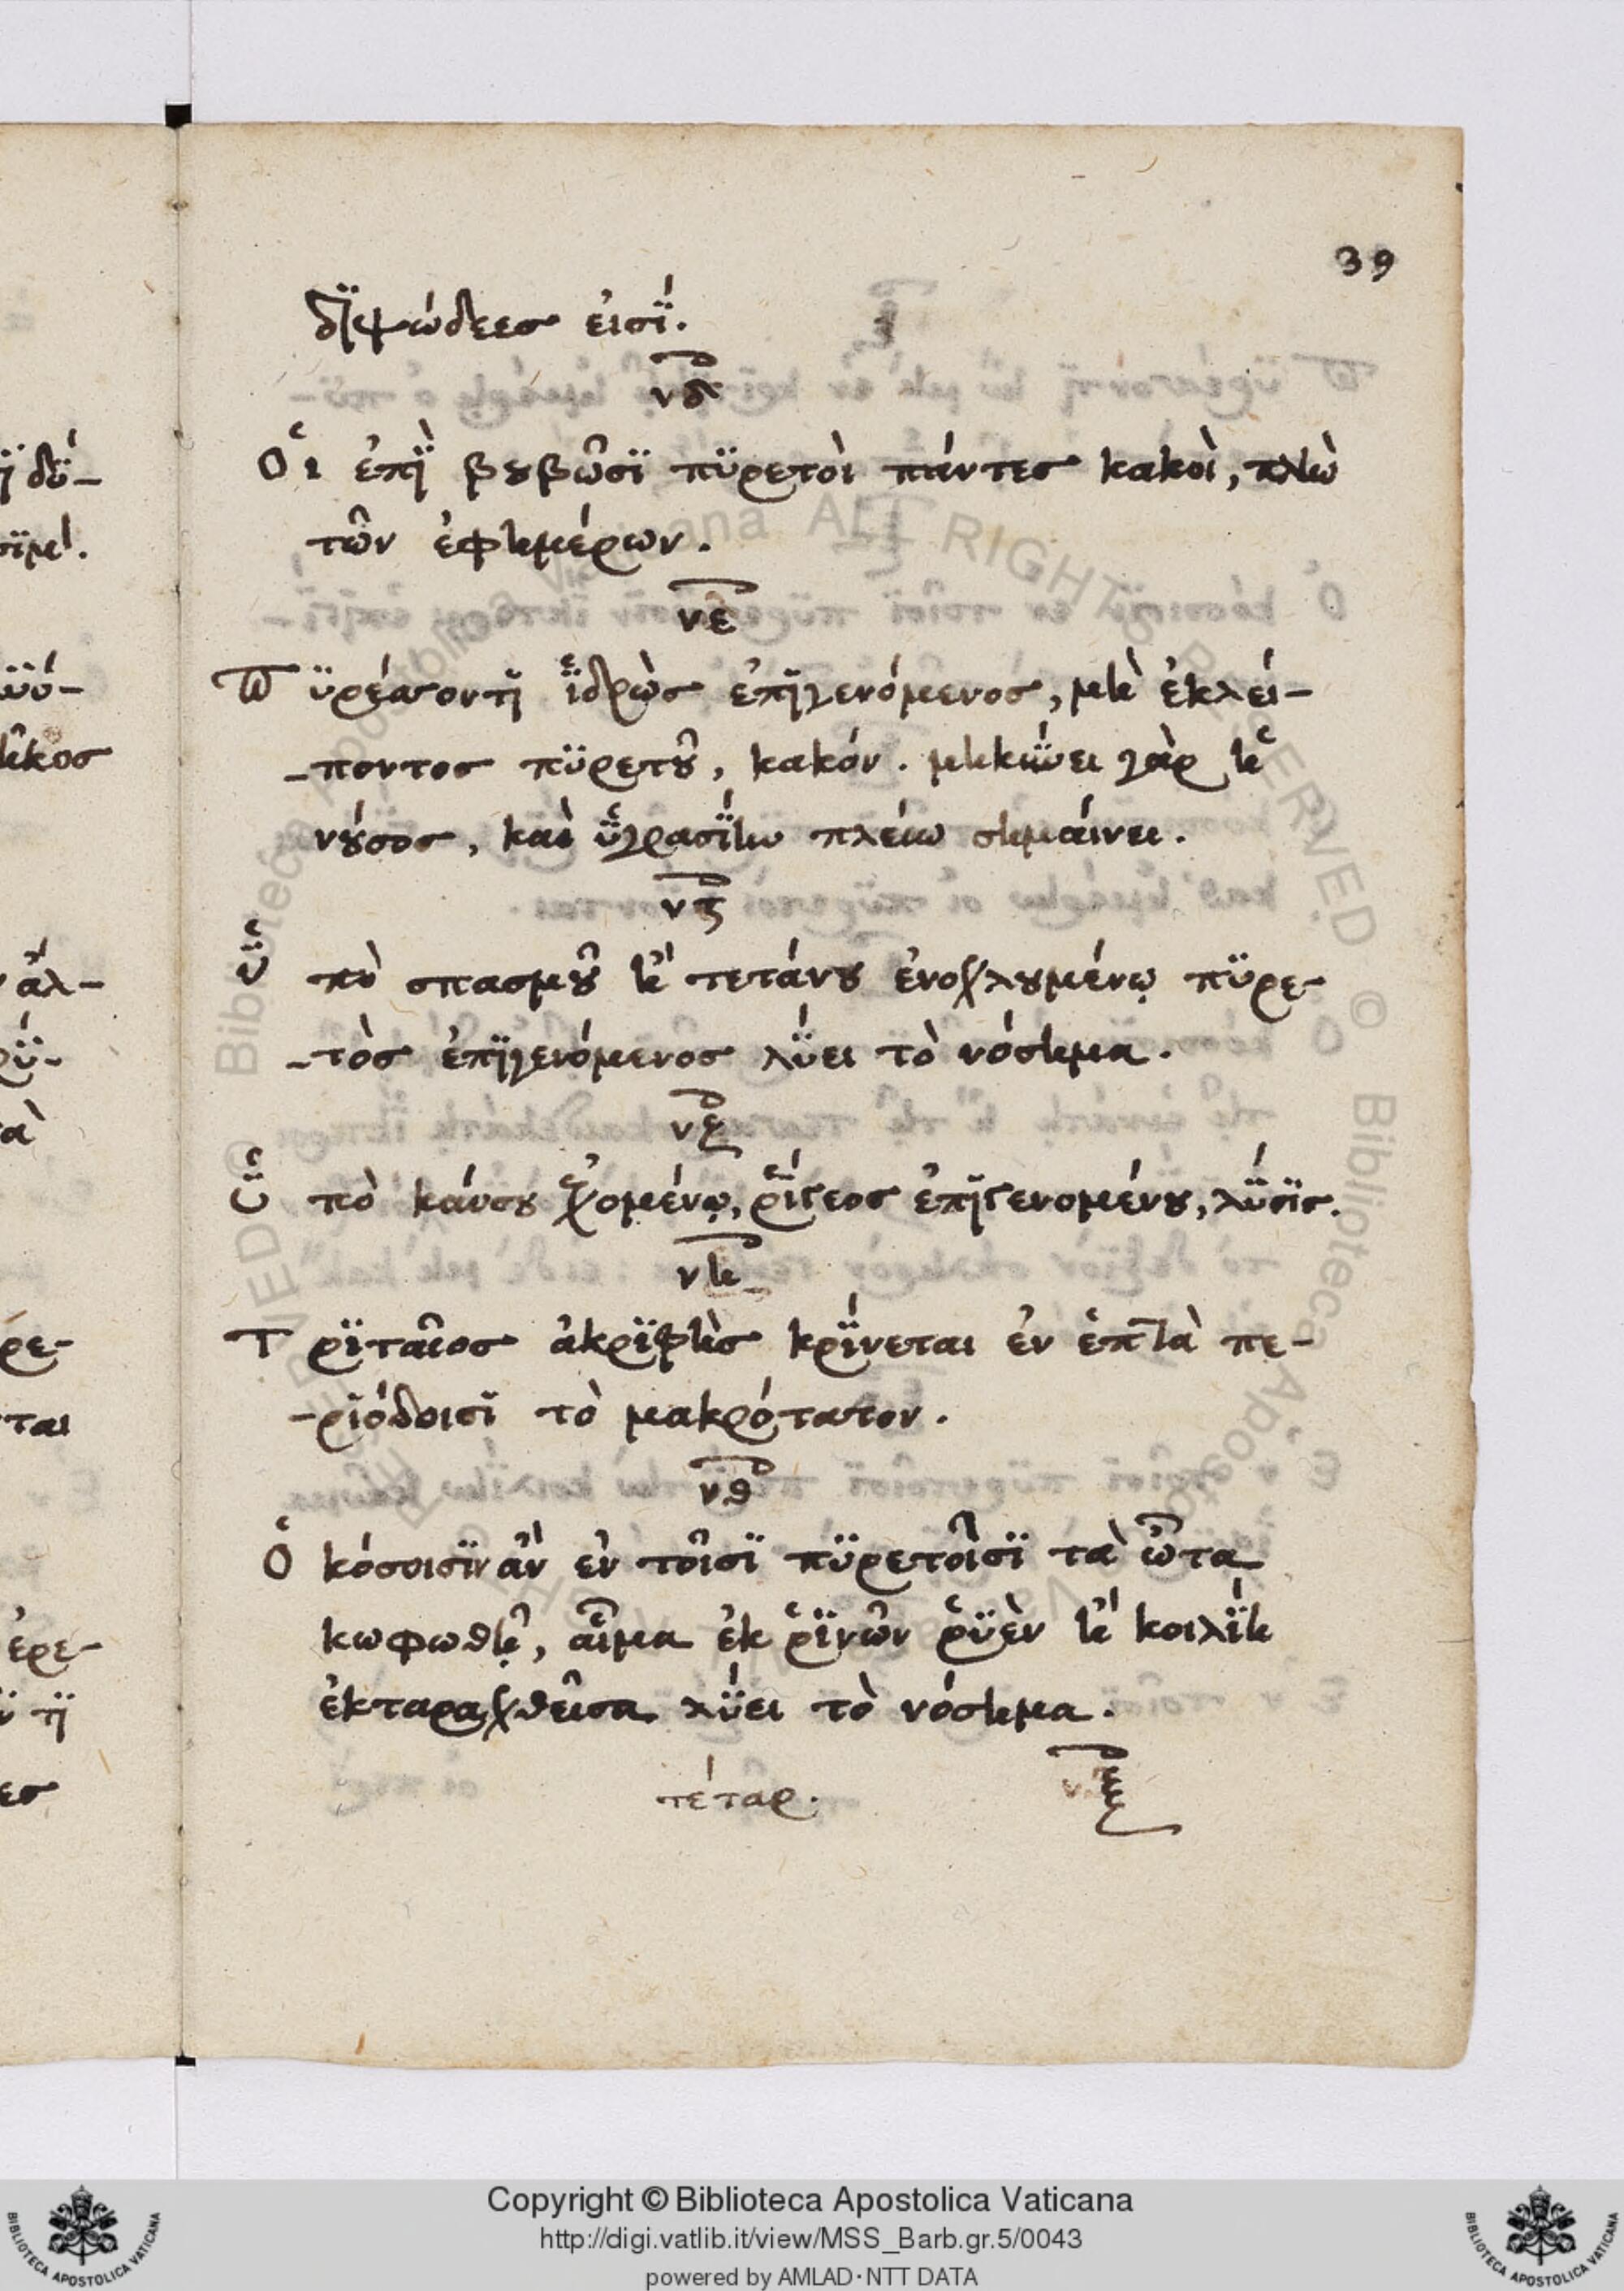 39
δϊψώδεες εἰσΐ.
νδ
Οἱ ἐπῒ βουβῶσϊ πϋρετοὶ πάντες κακοὶ, πλὴν
τῶν ἐφημέρων.
νε
Πϋρέσσοντϊ ἱδρὼς ἐπϊγενόμενος, μὴ ἐκλεί-
-ποντος πϋρετοῦ, κακόν. μηκΰνει γὰρ ἡ
νοῦσος, καὶ ὑγρασΐην πλείω σημαίνει.
νϛ
Ὑπὸ σπασμοῦ ἢ τετάνου ἐνοχλουμένῳ πϋρε-
-τὸς ἐπϊγενόμενος λΰει τὸ νόσημα.
νζ
Ὑπὸ καύσου ἐχομένῳ, ῥίγεος ἐπϊγενομένου, λΰσϊς.
νη
Τρϊταῖος ἀκρϊβὴς κρΐνεται ἐν ἑπτὰ πε-
-ρϊόδοισϊ τὸ μακρότατον.
νθ
Ὁκόσοισϊν ἂν ἐν τοῖσϊ πϋρετοῖσϊ τὰ ὦτα
κωφωθῇ, αἷμα ἐκ ῥϊνῶν ῥϋὲν ἢ κοιλΐη
ἐκταραχθεῖσα λΰει τὸ νόσημα.
τέταρ. ξ
ϊ δϋ-
σϊμ.
ῆκος
ἄλ-
ρϋ-
ὰ
ρε-
ται
ἐρε-
τϊ
ες
Copyright © Biblioteca Apostolica Vaticana
http://digi.vatlib.it/view/MSS_Barb.gr.5/0043
powered by AMLAD·NTT DATA
BIBLIOTECA APOSTOLICA VATICANA
BIBLIOTECA APOSTOLICA VATICANA